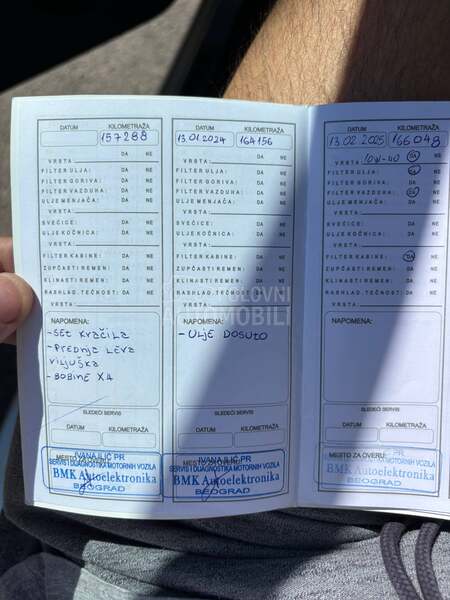 DATUM KILOMETRAŽA
157288
DA NE
VRSTA:
DA NE
FILTER ULJA: DA NE
FILTER GORIVA: DA NE
FILTER VAZDUHA: DA NE
ULJE MENJAČA: DA NE
VRSTA:
SVEĆICE: DA NE
ULJE KOČNICA: DA NE
FILTER KABINE: DA NE
ZUPČASTI REMEN: DA NE
KLINASTI REMEN: DA NE
RASHLAD. TEČNOST: DA NE
VRSTA:
NAPOMENA:
- SET KVAČILA
- PREDNJA LEVA
VILJUŠKA
- BOBINE X4
SLEDEĆI SERVIS
DATUM KILOMETRAŽA
MESTO ZA OVERU:
IVANA ILIĆ PR
SERVIS I DIJAGNOSTIKA MOTORNIH VOZILA
BMK Autoelektronika
BEOGRAD
DATUM KILOMETRAŽA
13.01.2024 164156
DA NE
VRSTA:
FILTER ULJA: DA NE
FILTER GORIVA: DA NE
FILTER VAZDUHA: DA NE
ULJE MENJAČA: DA NE
VRSTA:
SVEĆICE: DA NE
ULJE KOČNICA: DA NE
FILTER KABINE: DA NE
ZUPČASTI REMEN: DA NE
KLINASTI REMEN: DA NE
RASHLAD. TEČNOST: DA NE
VRSTA:
NAPOMENA:
- ULJE DOSUTO
SLEDEĆI SERVIS
DATUM KILOMETRAŽA
MESTO ZA OVERU:
IVANA ILIĆ PR
SERVIS I DIJAGNOSTIKA MOTORNIH VOZILA
BMK Autoelektronika
BEOGRAD
DATUM KILOMETRAŽA
13.02.2025 166048
DA NE
VRSTA: 10W-40
FILTER ULJA: DA NE
FILTER GORIVA: DA NE
FILTER VAZDUHA: DA NE
ULJE MENJAČA: DA NE
VRSTA:
SVEĆICE: DA NE
ULJE KOČNICA: DA NE
FILTER KABINE: DA NE
ZUPČASTI REMEN: DA NE
KLINASTI REMEN: DA NE
RASHLAD. TEČNOST: DA NE
VRSTA:
NAPOMENA:
SLEDEĆI SERVIS
DATUM KILOMETRAŽA
MESTO ZA OVERU: PR
MOTORNIH VOZILA
BMK Autoelektronika
BEOGRAD